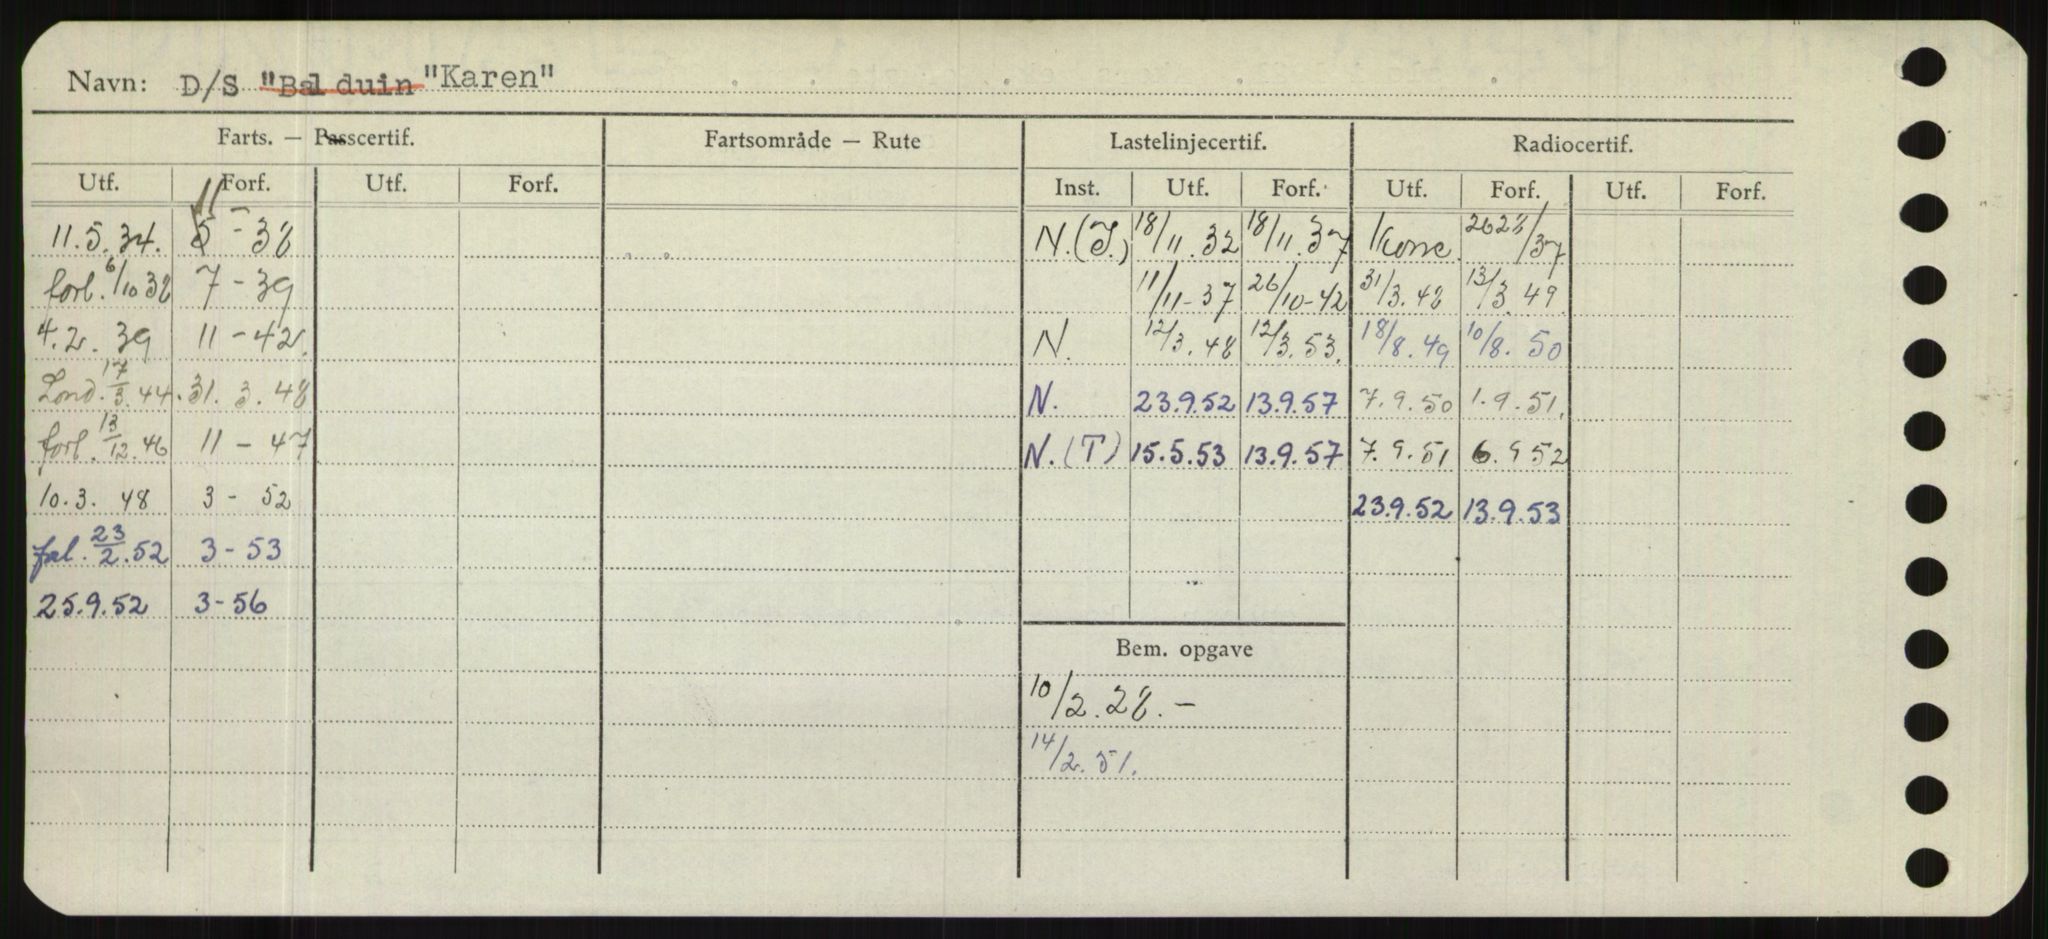 Navn: D/S "Balduin" "Karen"
Farts. — Passcertif. Fartsområde — Rute Lastelinjecertif. Radiocertif.
Utf. Forf. Utf. Forf. Inst. Utf. Forf. Utf. Forf. Utf. Forf.
11.5.34. 5 - 38 N.(T.) 18/11.32 18/11.37 /37
11
forl. 6/10 38 7 - 39 11/11-37 26/10-42 31/3.48 13/3 49
4.2. 39 11 - 42. N. 12/3.48 12/3.53. 18/8.49 10/8.50
Lond. 17/3.44. 31.3.48 N. 23.9.52 13.9.57 7.9.50 1.9.51.
forl. 13/12.46 11 - 47 N.(T) 15.5.53 13.9.57 7.9.51 6.9 52
10.3. 48 3 - 52 23.9.52 13.9.53
23/2.52 3 - 53
25.9.52 3-56
Bem. opgave
10/2.28. -
14/2.51.